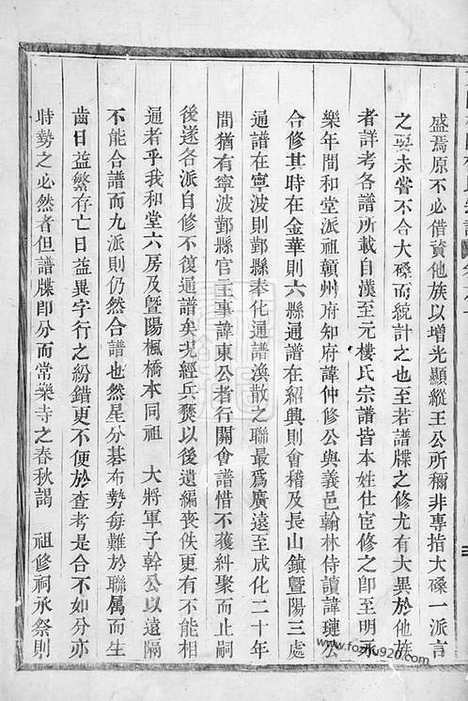 盛焉原不必借資他族以增光顯縱王公所稱非專指大磉一派言
之要未嘗不合大磉而統計之也至若譜牒之修尤有大異於他族
者詳考各譜所載自漢至元樓氏宗譜皆本姓仕宦修之卽至明永
樂年間和堂派祖贛州府知府諱仲修公與義邑翰林侍讀諱璉公
合修其時在金華則六縣通譜在紹興則會稽及長山鎭暨陽三處
通譜在寧波則鄞縣奉化通譜渙散之聯最爲廣遠至成化二十年
間猶有寧波鄞縣官主事諱東公者行關會譜惜不獲糾聚而止嗣
後遂各派自修不復通譜矣况經兵燹以後遺編喪佚更有不能相
通者乎我和堂六房及暨陽楓橋本同祖 大將軍子幹公以遠隔
不能合譜而九派則仍然合譜也然星分碁布勢每難於聯属而生
齒日益繁存亡日益異字行之紛錯更不便於查考是合不如分亦
時勢之必然者但譜牒卽分而常樂寺之春秋謁 祖修祠承祭則
www.fozhu920.com